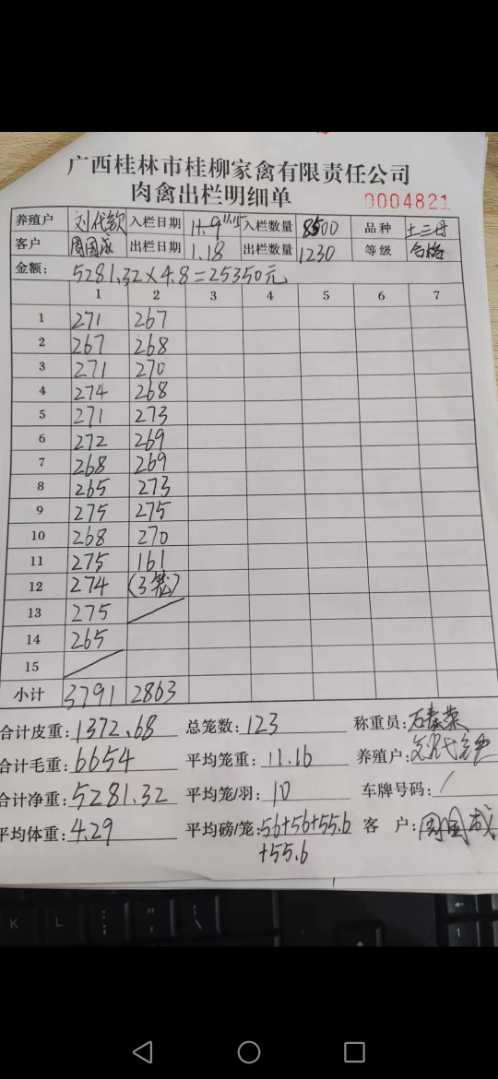 广西桂林市桂柳家禽有限责任公司
肉禽出栏明细单
0004821
养殖户 刘代钦 入栏日期 11.9 11.15 入栏数量 8500 品种 土三丹
客户 周国成 出栏日期 1.18 出栏数量 1230 等级 合格
金额: 5281.32×4.8=25350元
1 2 3 4 5 6 7
1 271 267
2 267 268
3 271 270
4 274 268
5 271 273
6 272 269
7 268 269
8 265 273
9 275 275
10 268 270
11 275 161
12 274 (3笼)
13 275
14 265
15
小计 3791 2863
合计皮重: 1372.68 总笼数: 123 称重员:
合计毛重: 6654 平均笼重: 11.16 养殖户:
合计净重: 5281.32 平均笼/羽: 10 车牌号码: /
平均体重: 4.29 平均磅/笼: 56+56+55.6 客 户: 周国成
+55.6
K L